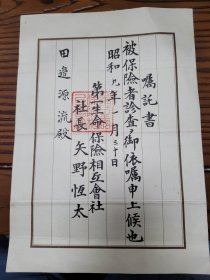 嘱託書
被保險者診査ヲ御依嘱申上候也
昭和九年一月三十日
第一生命保險相互會社
社長 矢野恒太
田邉源流殿